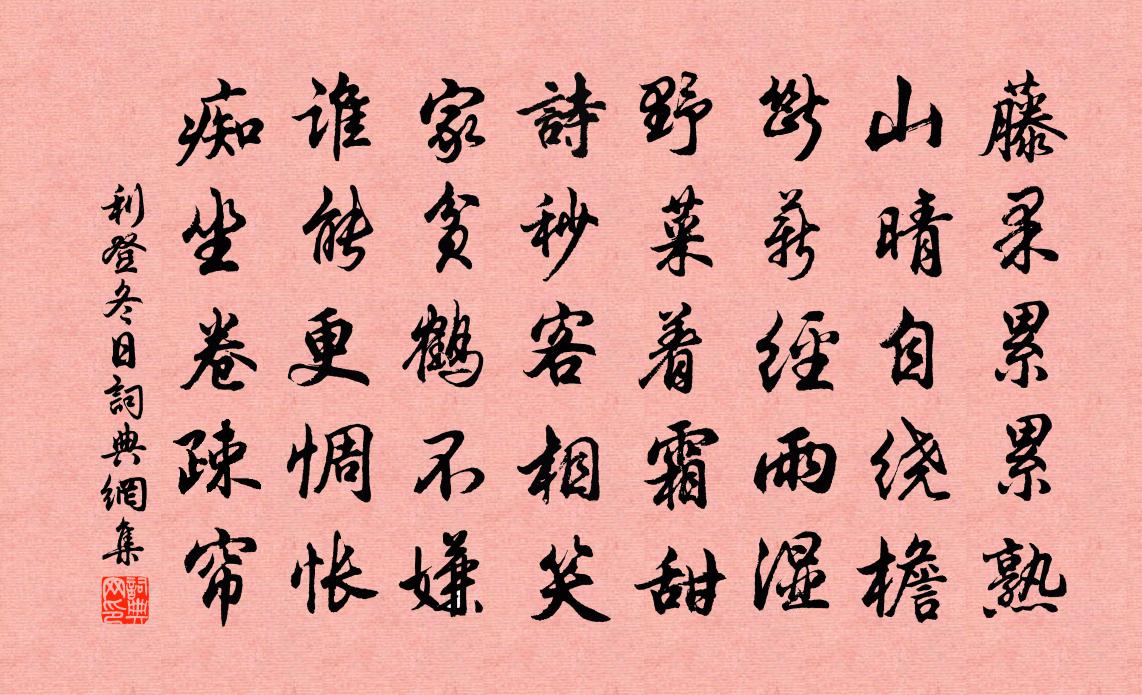 藤柔累累熟
山晴自绕檐
斷薪經雨湿
野菜着霜甜
詩秒客相笑
家貧鶴不嫌
谁能更惆怅
痴坐卷疎帘
利登冬日詞典網集
詞典网印